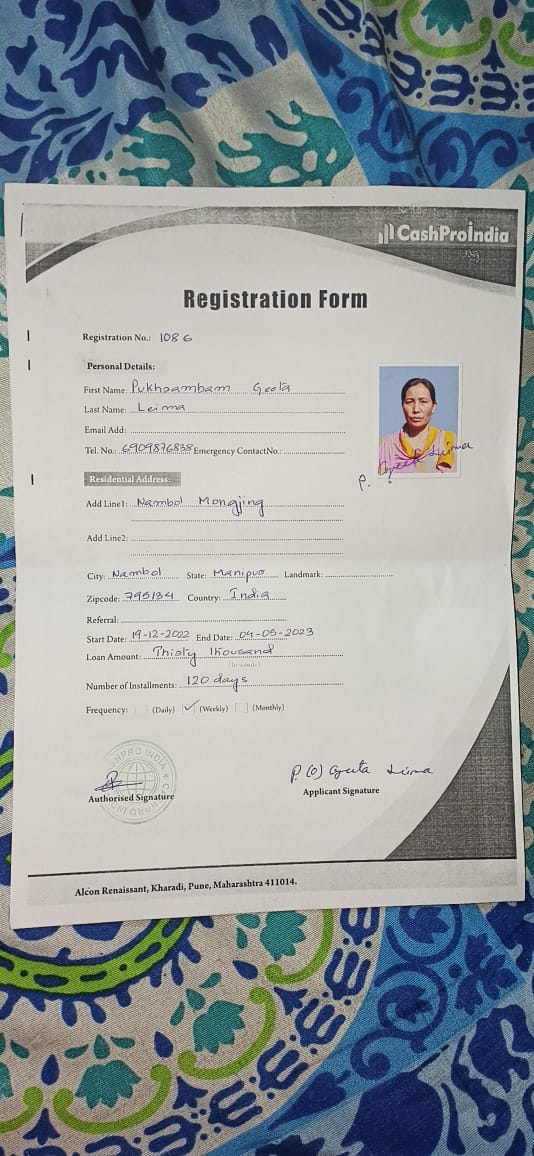 CashProIndia
Registration Form
Registration No.: 1086
Personal Details:
First Name: Pukhrambam Geeta
Last Name: Leima
Email Add:
Tel. No.: 6909876838 Emergency ContactNo.:
P. Geeta Leima
Residential Address:
Add Line1: Nambol Mongjing
Add Line2:
City: Nambol State: Manipur Landmark:
Zipcode: 795134 Country: India
Referral:
Start Date: 19-12-2022 End Date: 04-05-2023
Loan Amount: Thirty Thousand
(In words)
Number of Installments: 120 days
Frequency: (Daily) ✓ (Weekly) (Monthly)
CASHPRO INDIA
P. (O) Geeta Leima
Authorised Signature Applicant Signature
Alcon Renaissant, Kharadi, Pune, Maharashtra 411014.